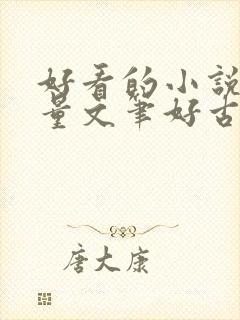 好看的小說
量文筆好古
唐大康